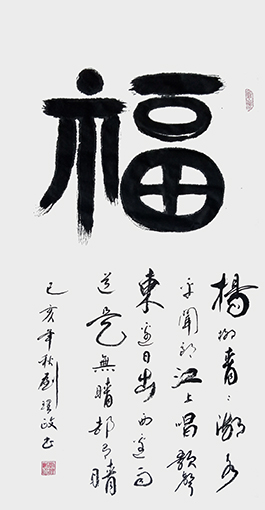 福
楊柳青〻水
平聞郎江上唱歌聲
東邊日出西邊雨
道是無晴卻有晴
己亥年秋劉政